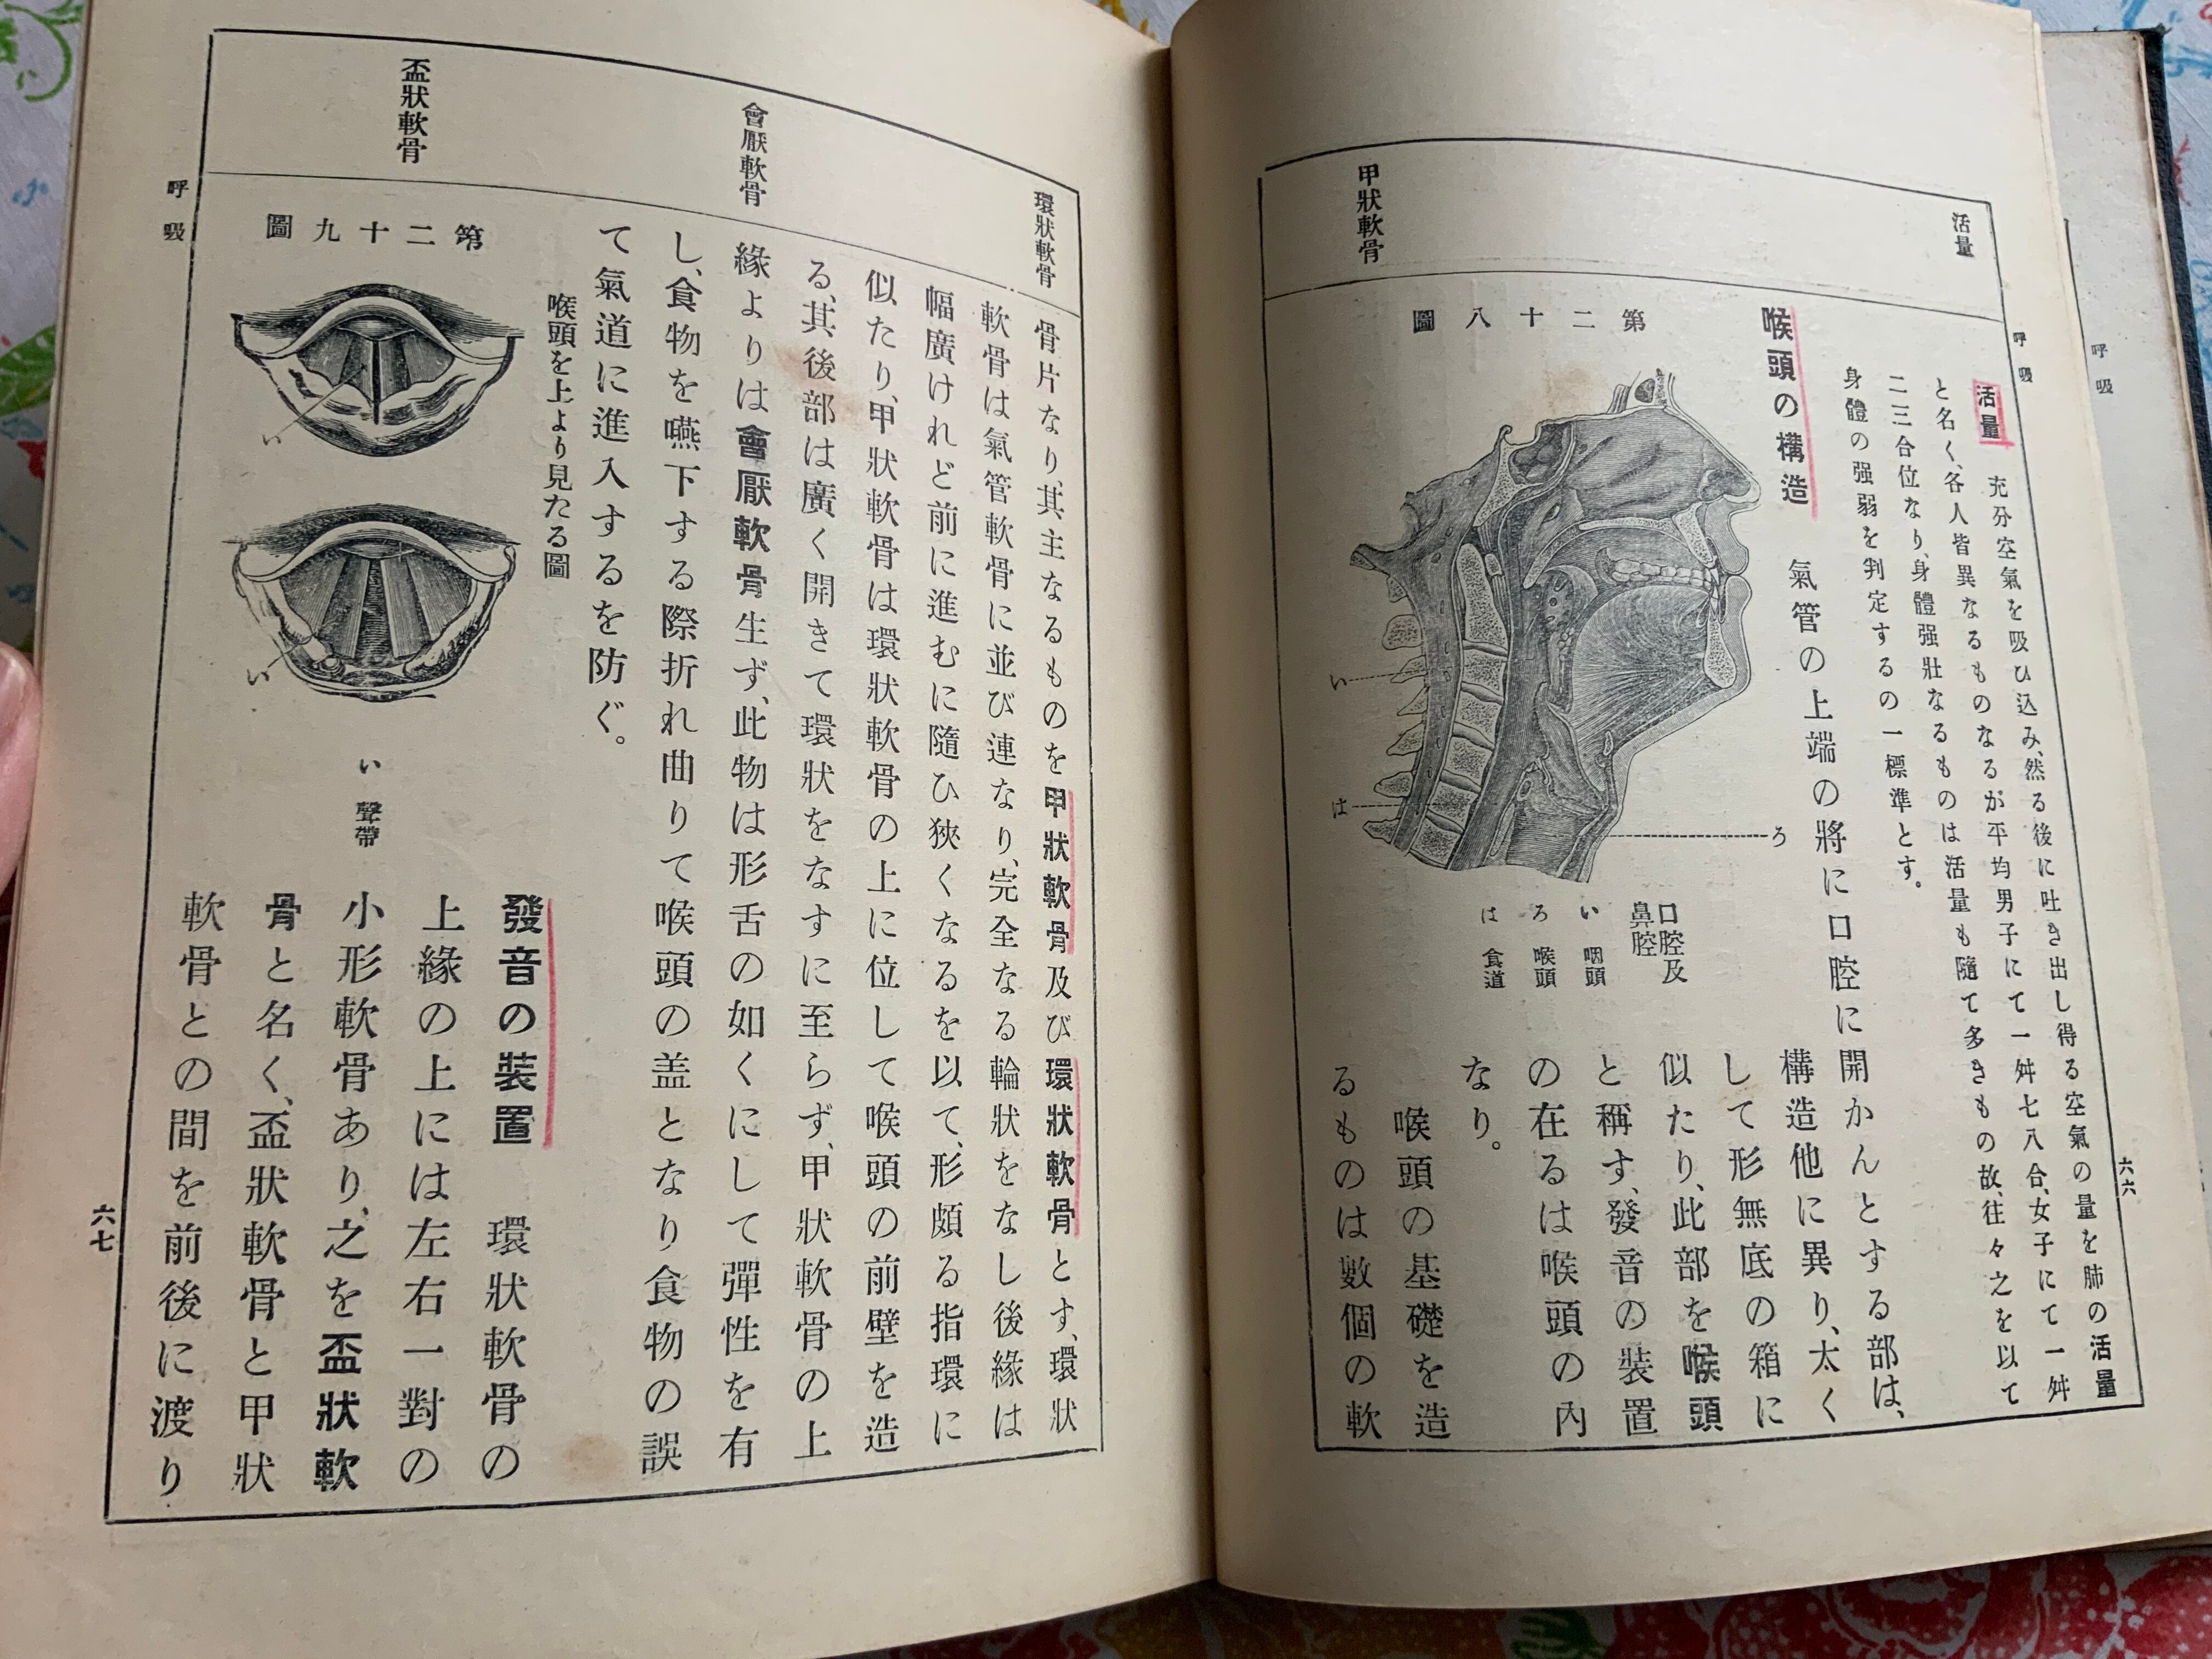 呼吸
六六
活量
甲狀軟骨
活量 充分空氣を吸ひ込み、然る後に吐き出し得る空氣の量を肺の活量
と名く、各人皆異なるものなるが平均男子にて一舛七八合、女子にて一舛
二三合位なり、身體强壯なるものは活量も隨て多きもの故、往々之を以て
身體の强弱を判定するの一標準とす。
喉頭の構造 氣管の上端の將に口腔に開かんとする部は、
構造他に異り、太く
して形無底の箱に
似たり、此部を喉頭
と稱す、發音の裝置
の在るは喉頭の內
なり。
喉頭の基礎を造
るものは數個の軟
第二十八圖
い
は
ろ
口腔及
鼻腔
い 咽頭
ろ 喉頭
は 食道
環狀軟骨
會厭軟骨
盃狀軟骨
骨片なり、其主なるものを甲狀軟骨及び環狀軟骨とす、環狀
軟骨は氣管軟骨に並び連なり、完全なる輪狀をなし後緣は
幅廣けれど前に進むに隨ひ狹くなるを以て、形頗る指環に
似たり、甲狀軟骨は環狀軟骨の上に位して喉頭の前壁を造
る、其後部は廣く開きて環狀をなすに至らず、甲狀軟骨の上
緣よりは會厭軟骨生ず、此物は形舌の如くにして彈性を有
し、食物を嚥下する際折れ曲りて喉頭の盖となり食物の誤
て氣道に進入するを防ぐ。
喉頭を上より見たる圖
第二十九圖
い
い
い 聲帶
發音の裝置 環狀軟骨の
上緣の上には左右一對の
小形軟骨あり、之を盃狀軟
骨と名く、盃狀軟骨と甲狀
軟骨との間を前後に渡り
呼吸
六七
呼吸